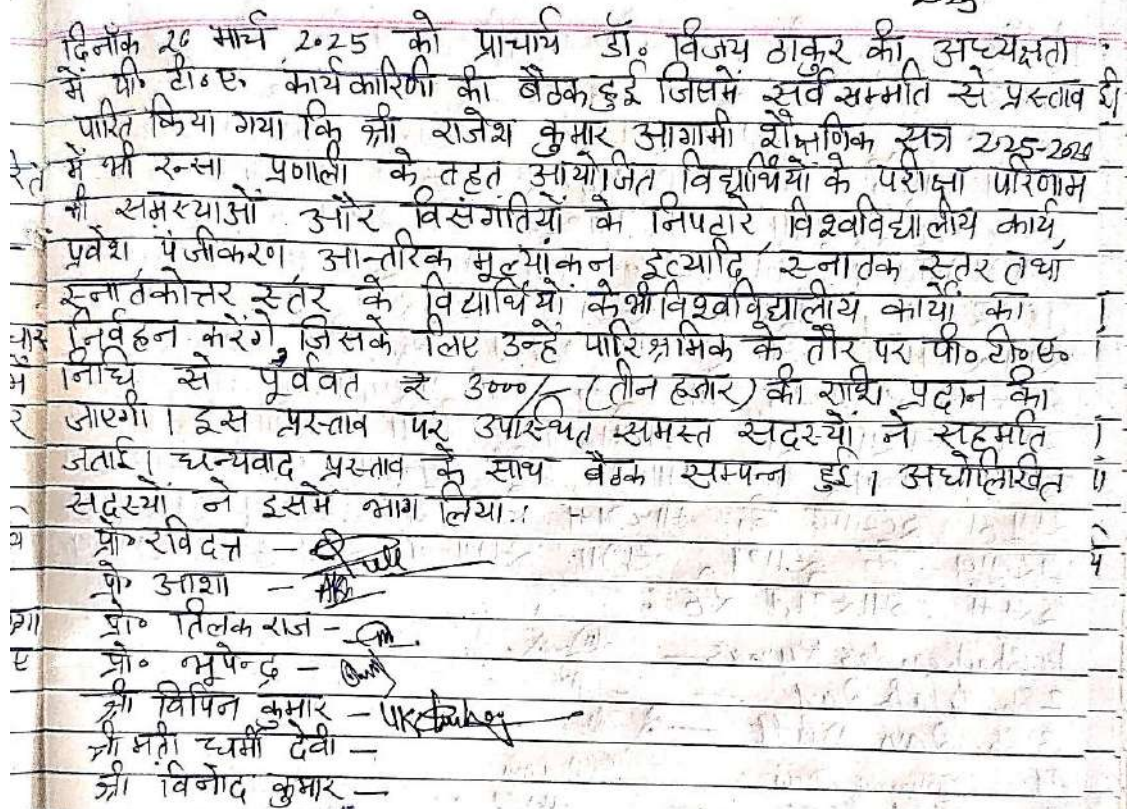 दिनाँक 26 मार्च 2025 को प्राचार्य डॉ॰ विजय ठाकुर की अध्यक्षता
में पी॰ टी॰ए॰ कार्यकारिणी की बैठक हुई जिसमें सर्वसम्मति से प्रस्ताव
पारित किया गया कि श्री राजेश कुमार आगामी शैक्षणिक सत्र 2025-2026
में भी रून्सा प्रणाली के तहत आयोजित विद्यार्थियों के परीक्षा परिणाम
की समस्याओं और विसंगतियों के निपटारे विश्वविद्यालीय कार्य,
प्रवेश पंजीकरण, आन्तरिक मूल्यांकन इत्यादि, स्नातक स्तर तथा
स्नातकोत्तर स्तर के विद्यार्थियों के भी विश्वविद्यालीय कार्यों का
निर्वहन करेंगे, जिसके लिए उन्हें पारिश्रमिक के तौर पर पी॰ टी॰ए॰
निधि से पूर्ववत ₹ 3000/- (तीन हजार) की राशि प्रदान की
जाएगी। इस प्रस्ताव पर उपस्थित समस्त सदस्यों ने सहमति
जताई। धन्यवाद प्रस्ताव के साथ बैठक सम्पन्न हुई। अधोलिखित
सदस्यों ने इसमें भाग लिया।
प्रो॰ रविदत्त -
प्रो॰ आशा -
प्रो॰ तिलक राज -
प्रो॰ भूपेन्द्र -
श्री विपिन कुमार -
श्रीमती धर्मी देवी -
श्री विनोद कुमार -